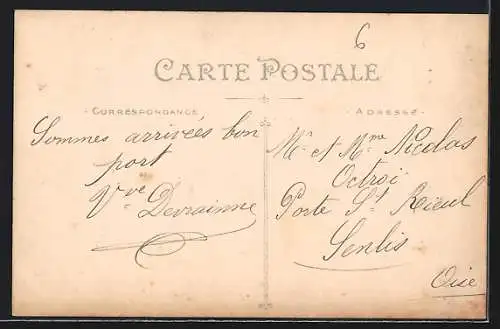 6
CARTE POSTALE
CORRESPONDANCE
Sommes arrivées bon
port
Vve Devrainne
ADRESSE
Mr et Mme Nicolas
Octroi
Porte St Rieul
Senlis
Oise